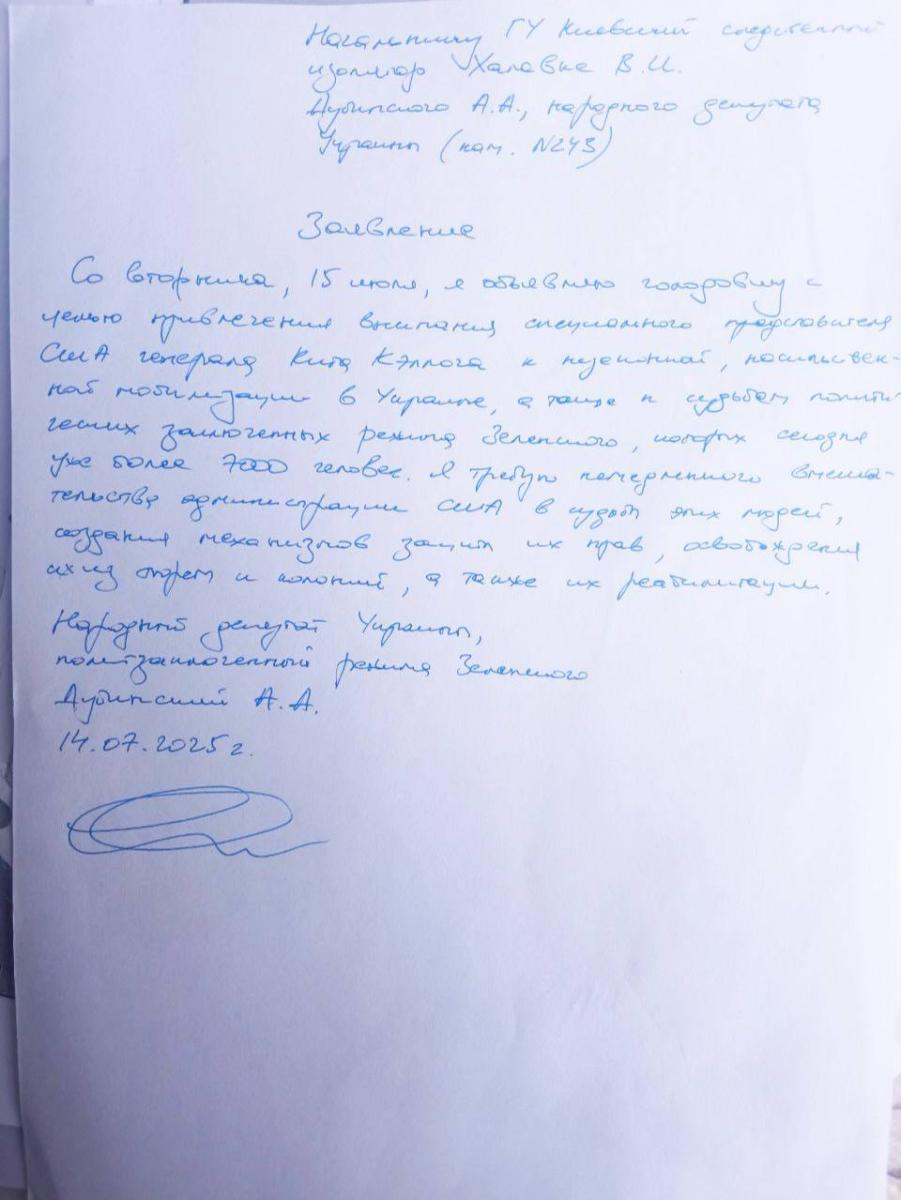 Начальнику ГУ Киевский следственный
изолятор Халавке В.И.
Дубинского А.А., народного депутата
Украины (кам. N243)
Заявление
Со вторника, 15 июля, я объявляю голодовку с
целью привлечения внимания специального представителя
США генерала Кита Кэллога к незаконной, насильствен-
ной мобилизации в Украине, а также к судьбам полити
ческих заключенных режима Зеленского, которых сегодня
уже более 7000 человек. Я требую немедленного вмеша-
тельства администрации США в судьбы этих людей,
создания механизмов защиты их прав, освобождения
их из тюрем и колоний, а также их реабилитации.
Народный депутат Украины,
политзаключенный режима Зеленского
Дубинский А.А.
14.07.2025 г.